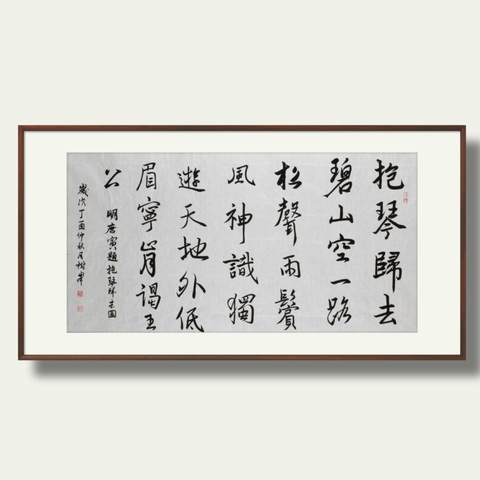 抱琴歸去
碧山空一路
松聲兩鬢
風神識獨
遊天地外低
眉寧肯謁王
公
明唐寅題抱琴歸圖
歲次丁酉仲秋月